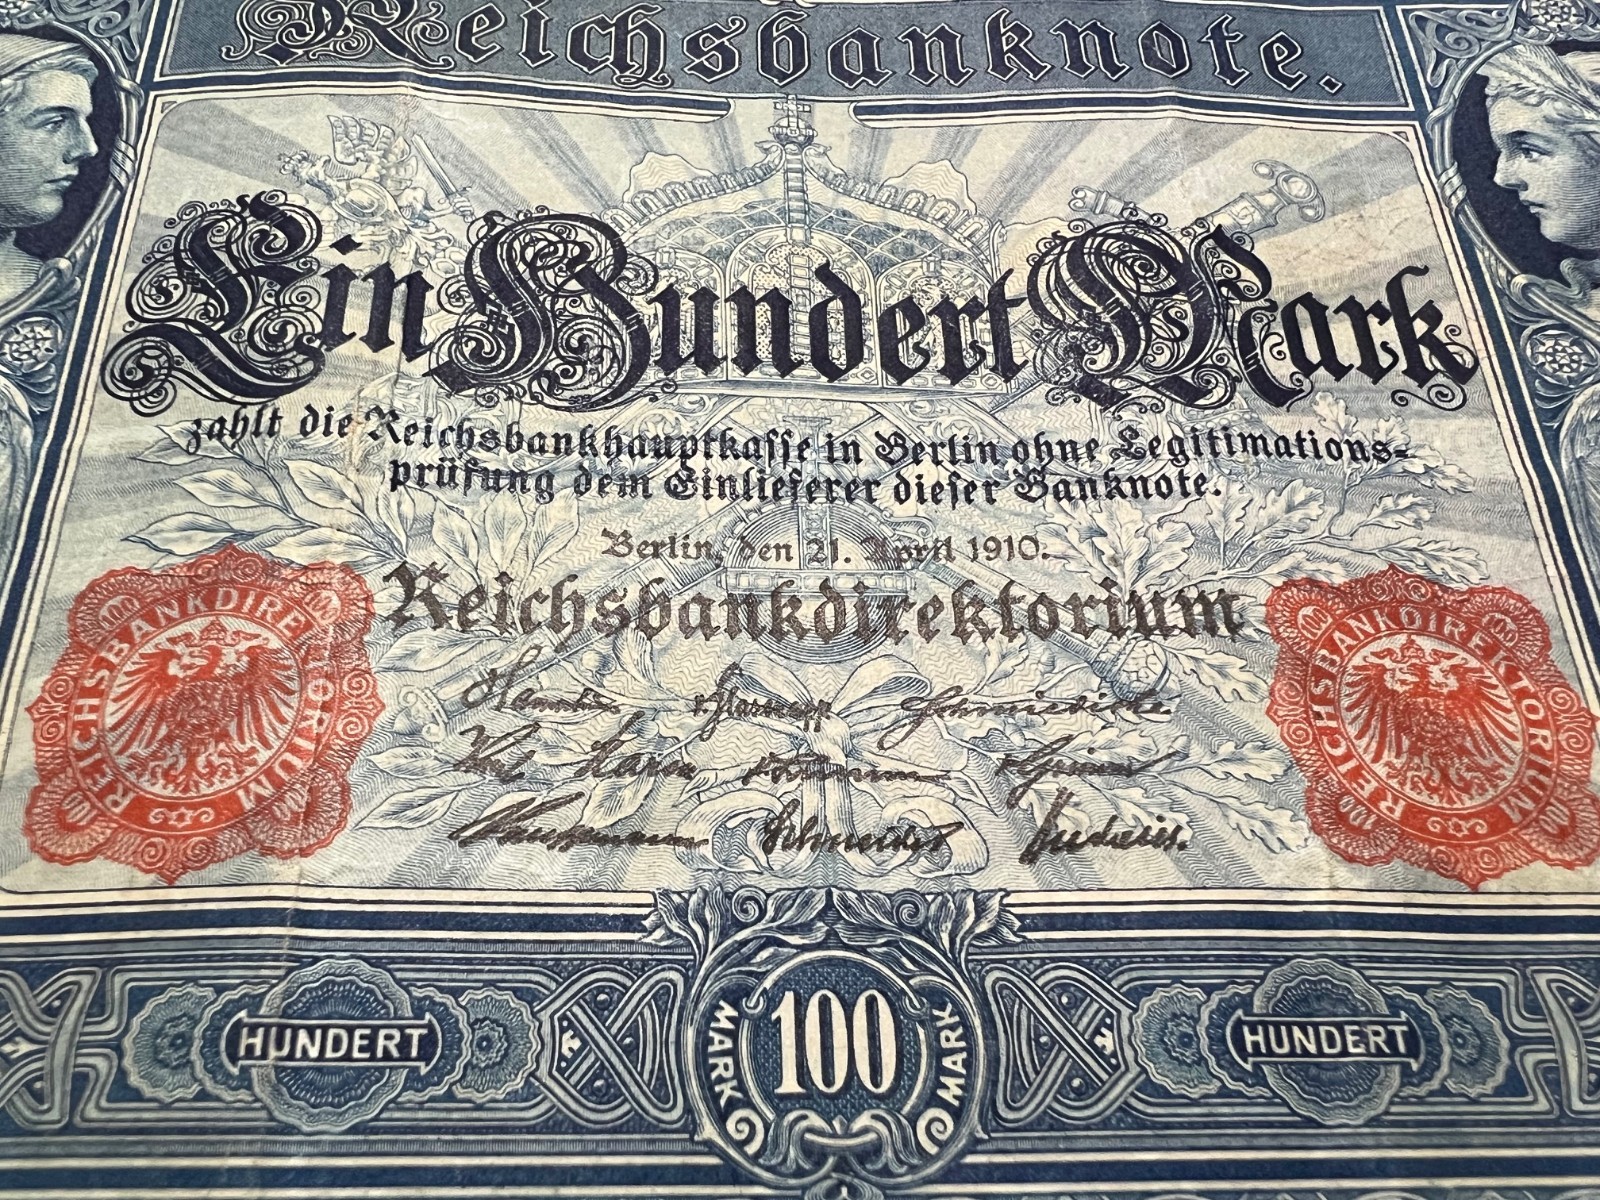 Reichsbanknote.
Ein Hundert Mark
zahlt die Reichsbankhauptkasse in Berlin ohne Legitimations=
prüfung dem Einlieferer dieser Banknote.
Berlin, den 21. April 1910.
Reichsbankdirektorium
REICHSBANKDIREKTORIUM
100
100
REICHSBANKDIREKTORIUM
100
100
100
Schmiedicke
Korn
Grimm
Kauffmann
Schneider
Budczies.
HUNDERT
MARK
100
MARK
HUNDERT